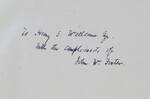 To Henry S. Wellcome Esq.
With the compliments of
John W. Foster